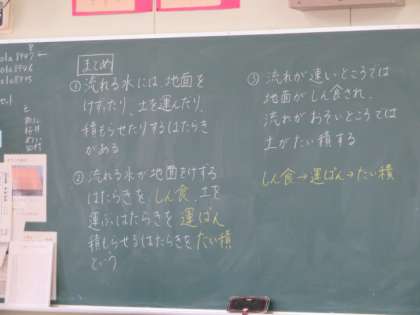 まとめ
① 流れる水には、地面を
けずったり、土を運んだり、
積もらせたりするはたらき
がある
② 流れる水が地面をけずる
はたらきを しん食、土を
運ぶはたらきを 運ぱん
積もらせるはたらきを たい積
という
③ 流れが速いところでは
地面がしん食され、
流れがおそいところでは
土がたい積する
しん食→運ぱん→たい積